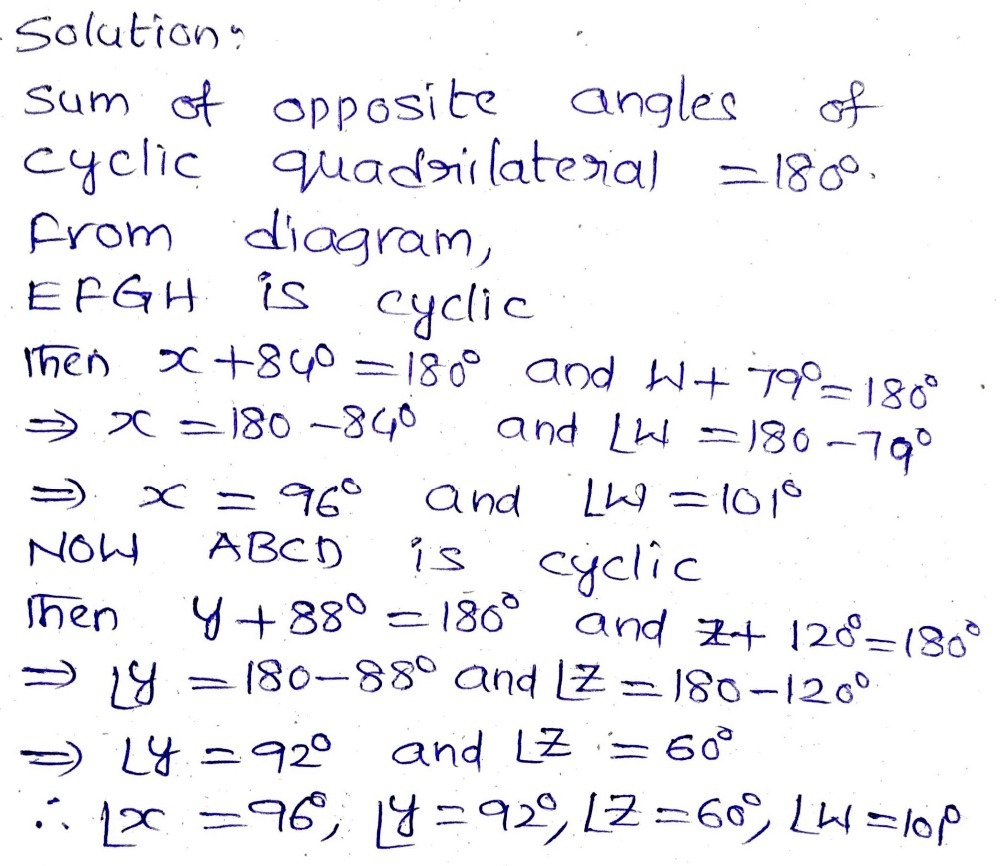 Solution:
Sum of opposite angles of
cyclic quadrilateral = 180°.
From diagram,
EFGH is cyclic
Then x + 84° = 180° and W + 79° = 180°
⇒ x = 180 - 84° and ∠W = 180 - 79°
⇒ x = 96° and ∠W = 101°
NOW ABCD is cyclic
Then y + 88° = 180° and Z + 120° = 180°
⇒ ∠y = 180 - 88° and ∠Z = 180 - 120°
⇒ ∠y = 92° and ∠Z = 60°
∴ ∠x = 96°, ∠y = 92°, ∠Z = 60°, ∠W = 101°